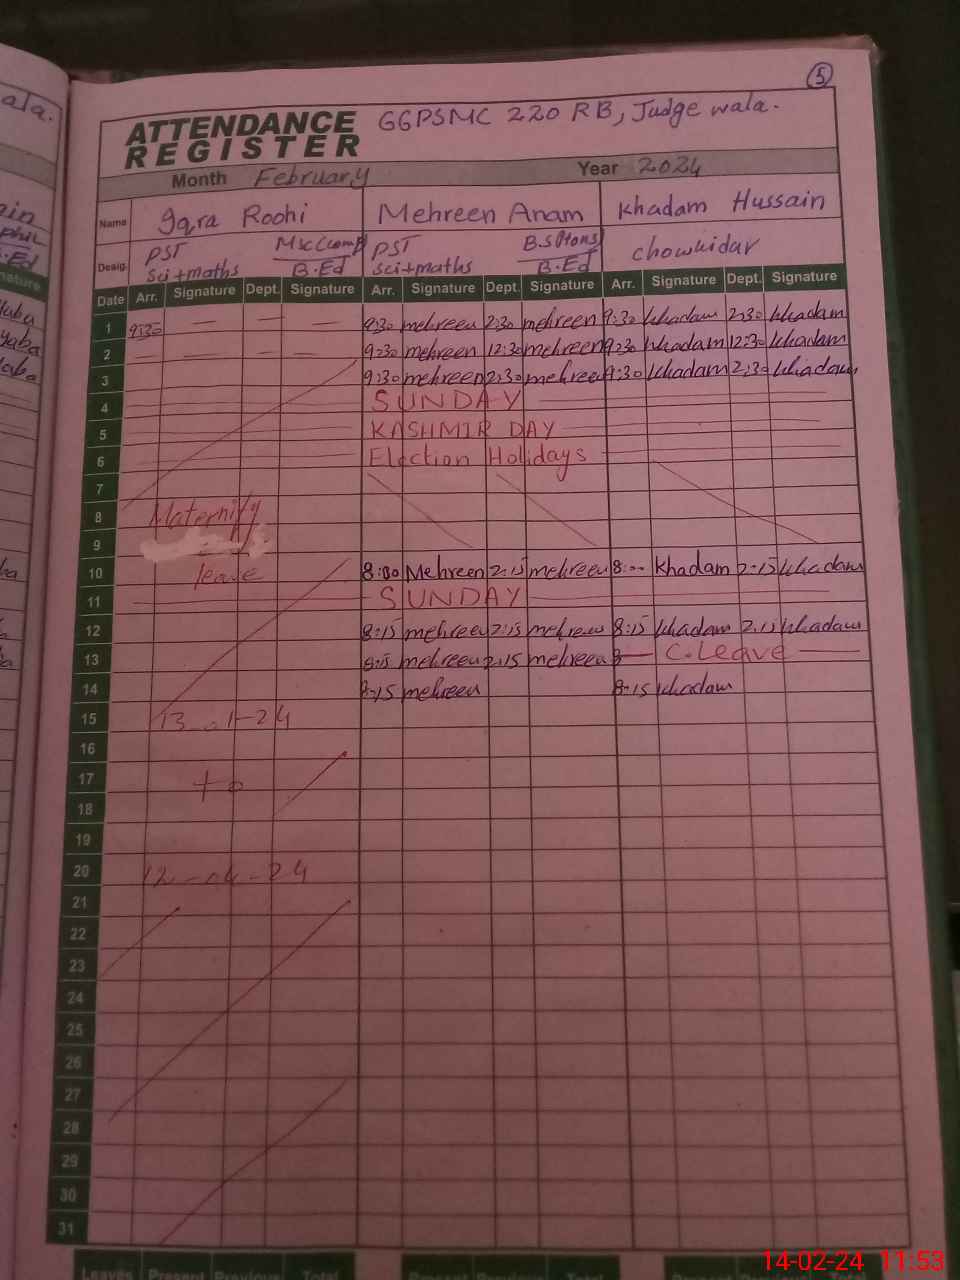 5
ATTENDANCE REGISTER GGPSMC 220 RB, Judge wala.
Month February Year 2024
Name Iqra Roohi Mehreen Anam Khadam Hussain
Desig. PST Msc(Comp) PST B.S(Hons) chowkidar
sci+maths B.Ed sci+maths B.Ed
Date Arr. Signature Dept. Signature Arr. Signature Dept. Signature Arr. Signature Dept. Signature
1 9:30 — — — 9:30 mehreen 2:30 mehreen 9:30 khadam 2:30 khadam
2 — — — 9:30 mehreen 12:30 mehreen 9:30 khadam 12:30 khadam
3 9:30 mehreen 2:30 mehreen 9:30 khadam 2:30 khadam
4 SUNDAY
5 KASHMIR DAY
6 Election Holidays
7
8 Maternity
9
10 leave 8:00 Mehreen 2:15 mehreen 8:00 khadam 2:15 khadam
11 SUNDAY
12 8:15 mehreen 2:15 mehreen 8:15 khadam 2:15 khadam
13 8:15 mehreen 2:15 mehreen 8 — C.Leave —
14 8:15 mehreen 8:15 khadam
15 13-01-24
16
17 to
18
19
20 12-04-24
21
22
23
24
25
26
27
28
29
30
31
Leaves Present Previous Total
14-02-24 11:53